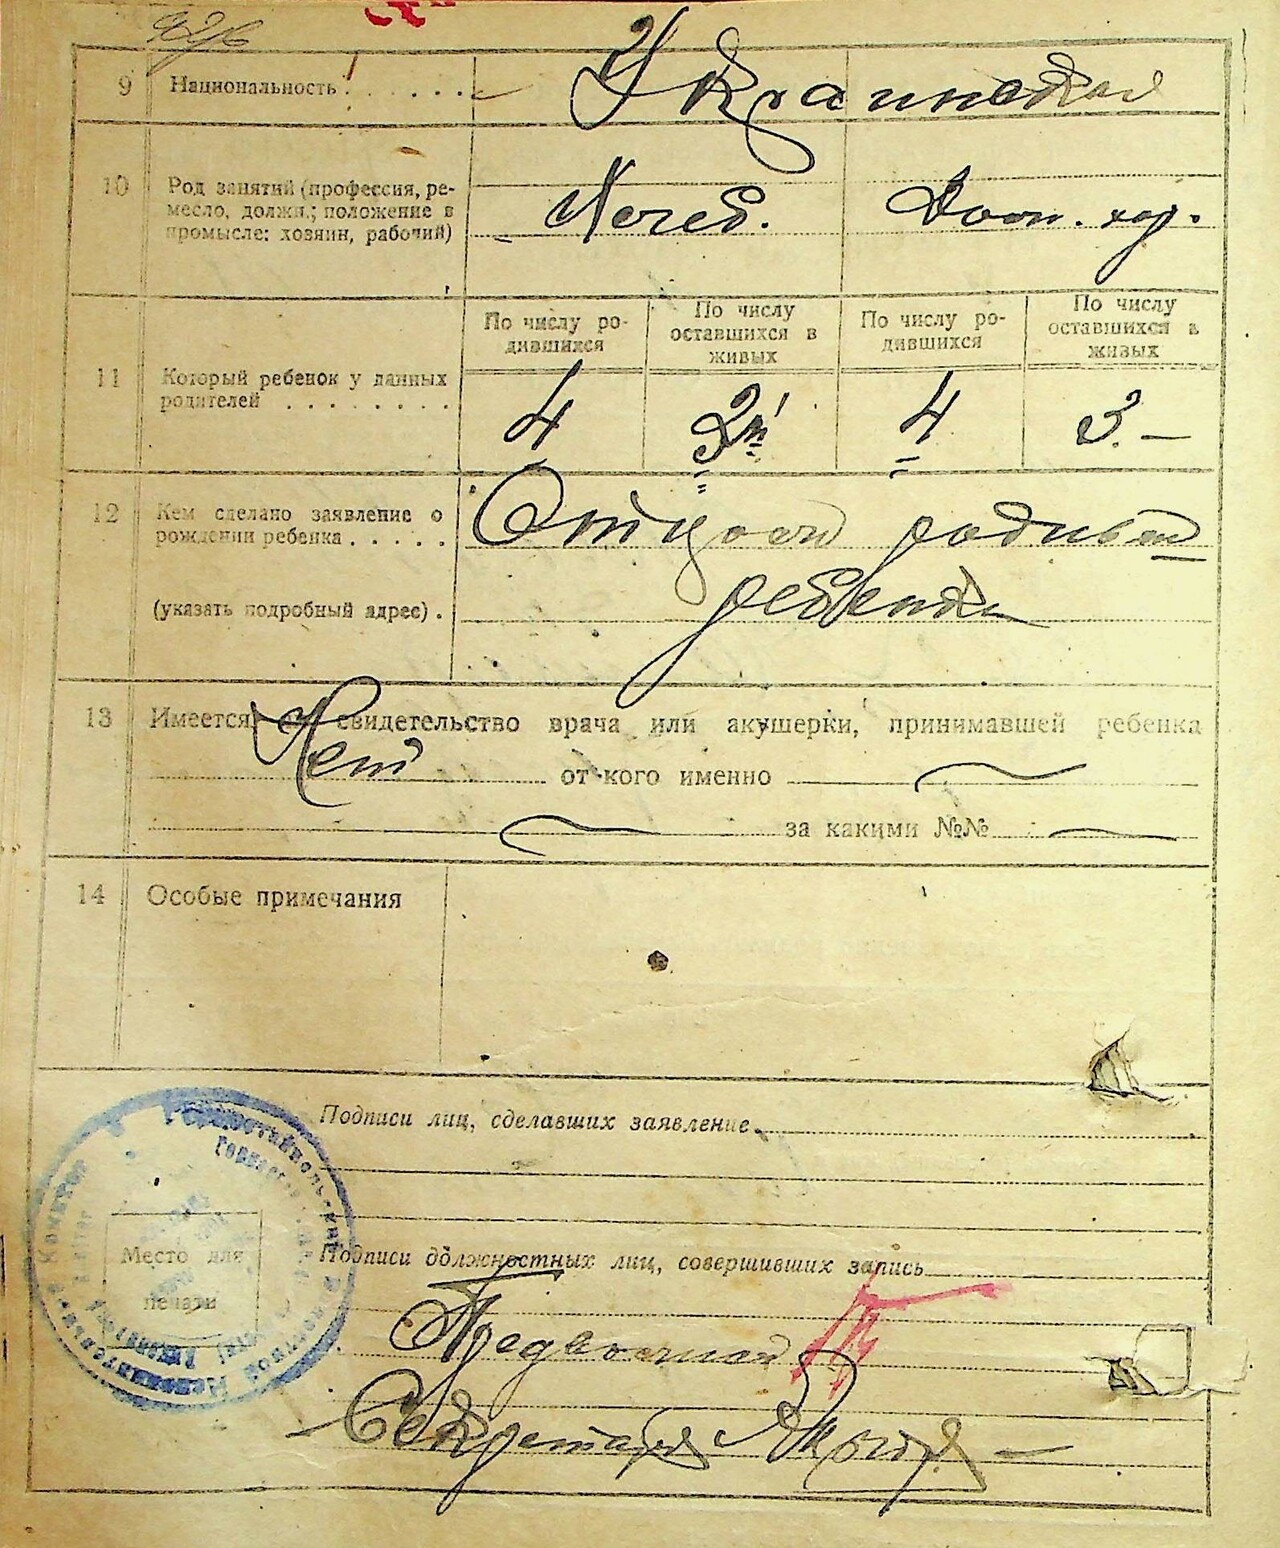 9 Национальность . . . . . . . Украинская
10 Род занятий (профессия, ре-
месло, должн.; положение в
промысле: хозяин, рабочий)
Хлеб. Дом. хоз.
11 Который ребенок у данных
родителей . . . . . . . .
По числу ро-
дившихся
По числу
оставшихся в
живых
По числу ро-
дившихся
По числу
оставшихся в
живых
4 3 4 3. —
12 Кем сделано заявление о
рождении ребенка . . . . .
(указать подробный адрес) .
Отцом
ребенка
13 Имеется свидетельство врача или акушерки, принимавшей ребенка
Нет от кого именно
за какими №№
14 Особые примечания
Подписи лиц, сделавших заявление
Место для
печати
Подписи должностных лиц, совершивших запись
Секретарь